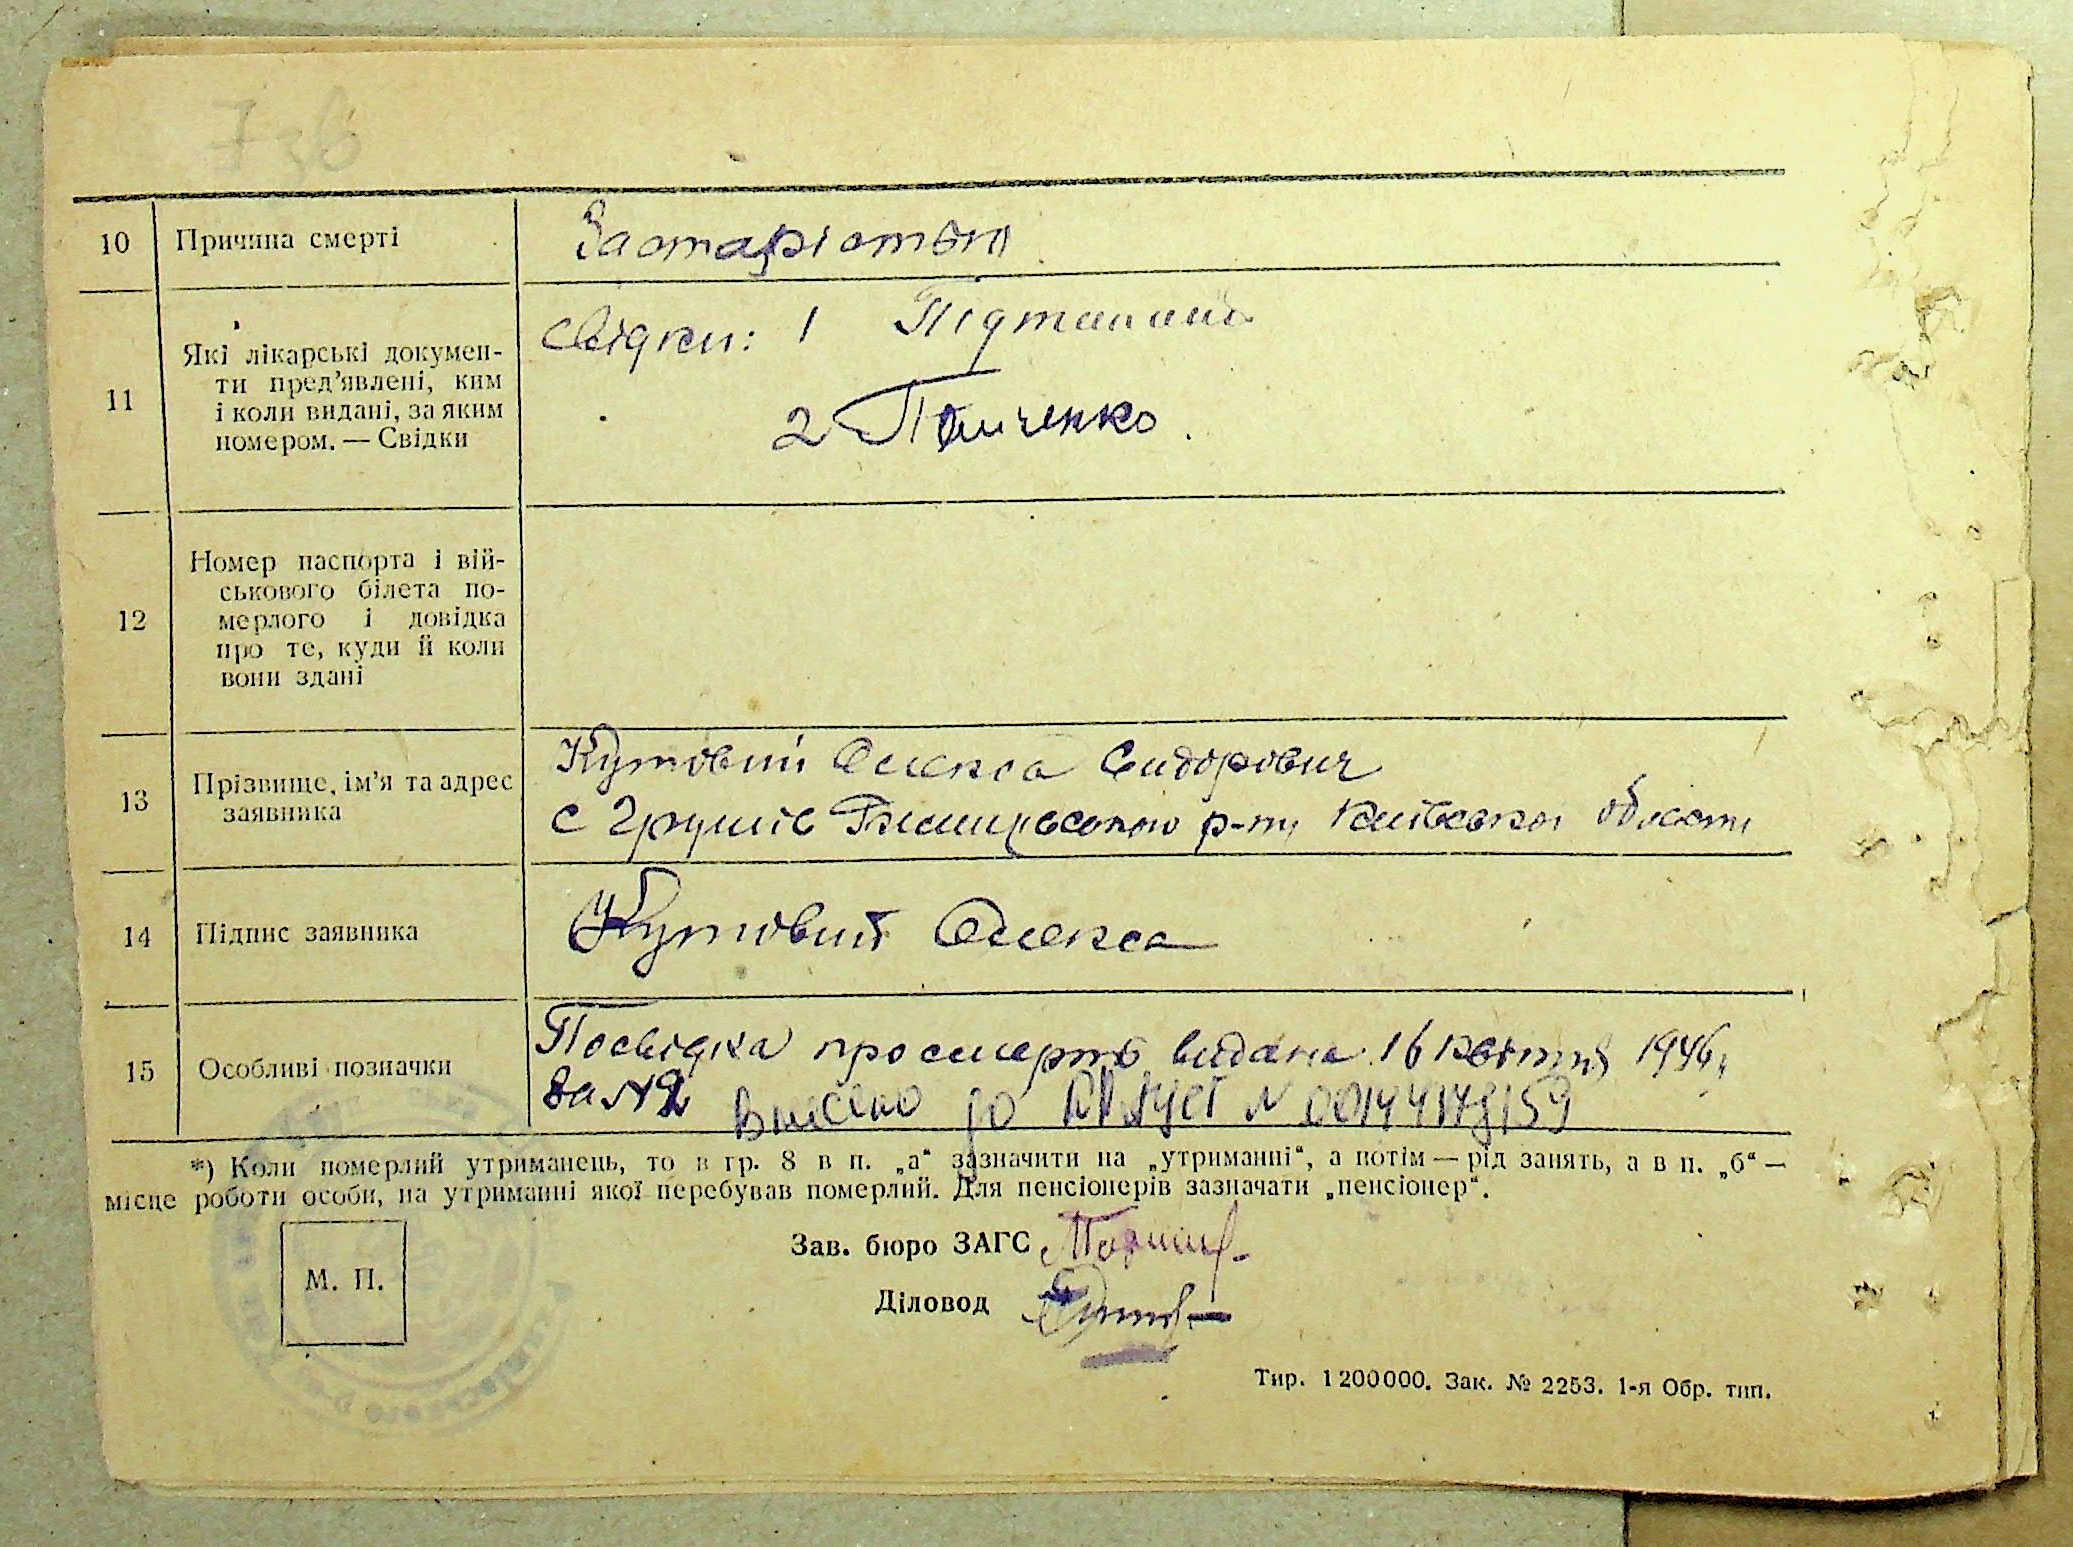 7 зв
10 Причина смерті За старістю
11 Які лікарські докумен-
ти пред’явлені, ким
і коли видані, за яким
номером. — Свідки
Свідки: 1
2
12 Номер паспорта і вій-
ськового білета по-
мерлого і довідка
про те, куди й коли
вони здані
13 Прізвище, ім’я та адрес
заявника
Кутовий Олекса Сидорович
с Грушів р-ну Київської області
14 Підпис заявника Кутовий Олекса
15 Особливі позначки
Посвідка про смерть видана 16 квітня 1946
За №2 Внесено до № 00144148159
*) Коли померлий утриманець, то в гр. 8 в п. „а“ зазначити на „утриманні“, а потім — рід занять, а в п. „б“ —
місце роботи особи, на утриманні якої перебував померлий. Для пенсіонерів зазначати „пенсіонер“.
Зав. бюро ЗАГС
М. П.
Діловод
Тир. 1200000. Зак. № 2253. 1-я Обр. тип.